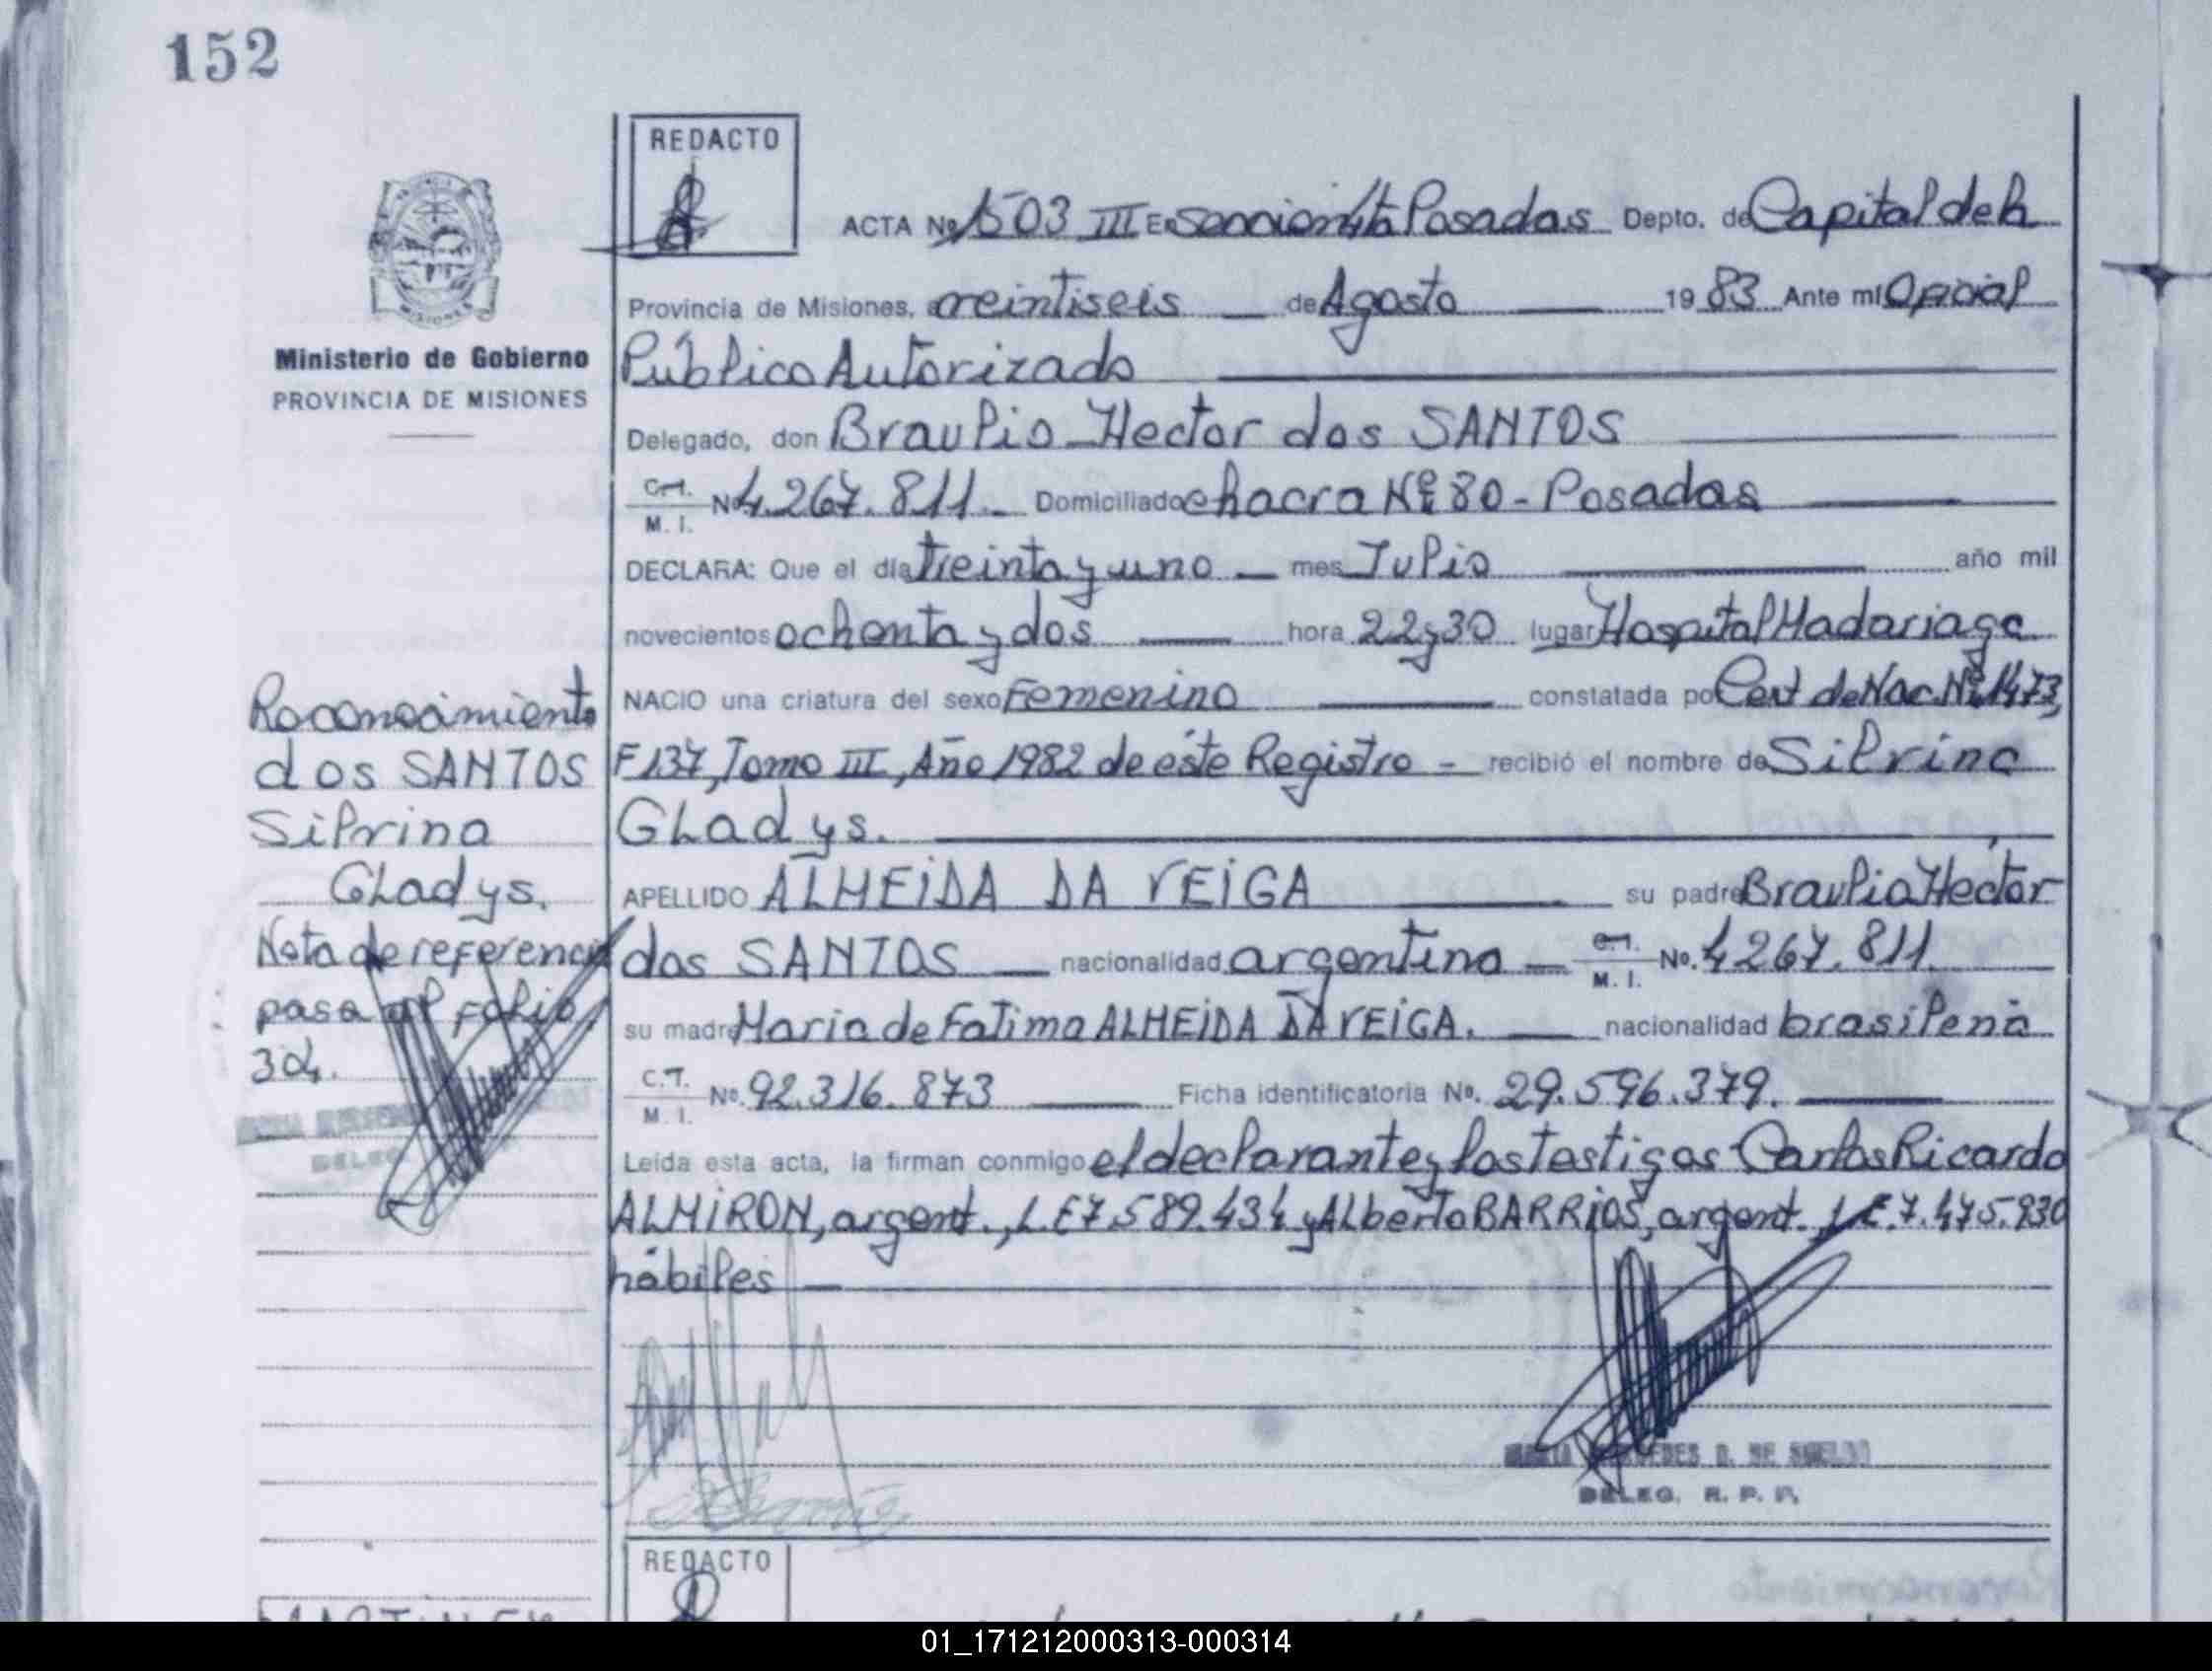 152
REDACTO
ACTA Nº 1503 III En sección 4ta Posadas Depto. de Capital de la
Provincia de Misiones, a veintiseis de Agosto 1983 Ante mi Oficial
Público Autorizado
Ministerio de Gobierno
PROVINCIA DE MISIONES
Delegado, don Braulio Hector dos SANTOS
C.I. M. I. Nº 4.267.811. Domiciliado chacra Nº 80 - Posadas
DECLARA: Que el día treinta y uno mes Julio año mil
novecientos ochenta y dos hora 22 y 30 lugar Hospital Madariaga
NACIO una criatura del sexo Femenino constatada por Cert de Nac. Nº 1473,
F 137, Tomo III, Año 1982 de éste Registro - recibió el nombre de Silvina
Gladys.
APELLIDO ALMEIDA DA VEIGA su padre Braulio Hector
dos SANTOS nacionalidad argentino C.I. M. I. No. 4267.811.
su madre Maria de Fatima ALMEIDA DA VEIGA. nacionalidad brasileña
C.I. M. I. No. 92.316.873 Ficha identificatoria No. 29.596.379.
Leída esta acta, la firman conmigo el declarante y los testigos Carlos Ricardo
ALMIRON, argent., L.E 7.589.434 y Alberto BARRIOS, argent. L.E. 7.475.930
hábiles
Reconocimiento
dos SANTOS
Silvina
Gladys.
Nota de referencia
pasa al folio
304.
DELEG. R. P. P.
REDACTO
01_171212000313-000314